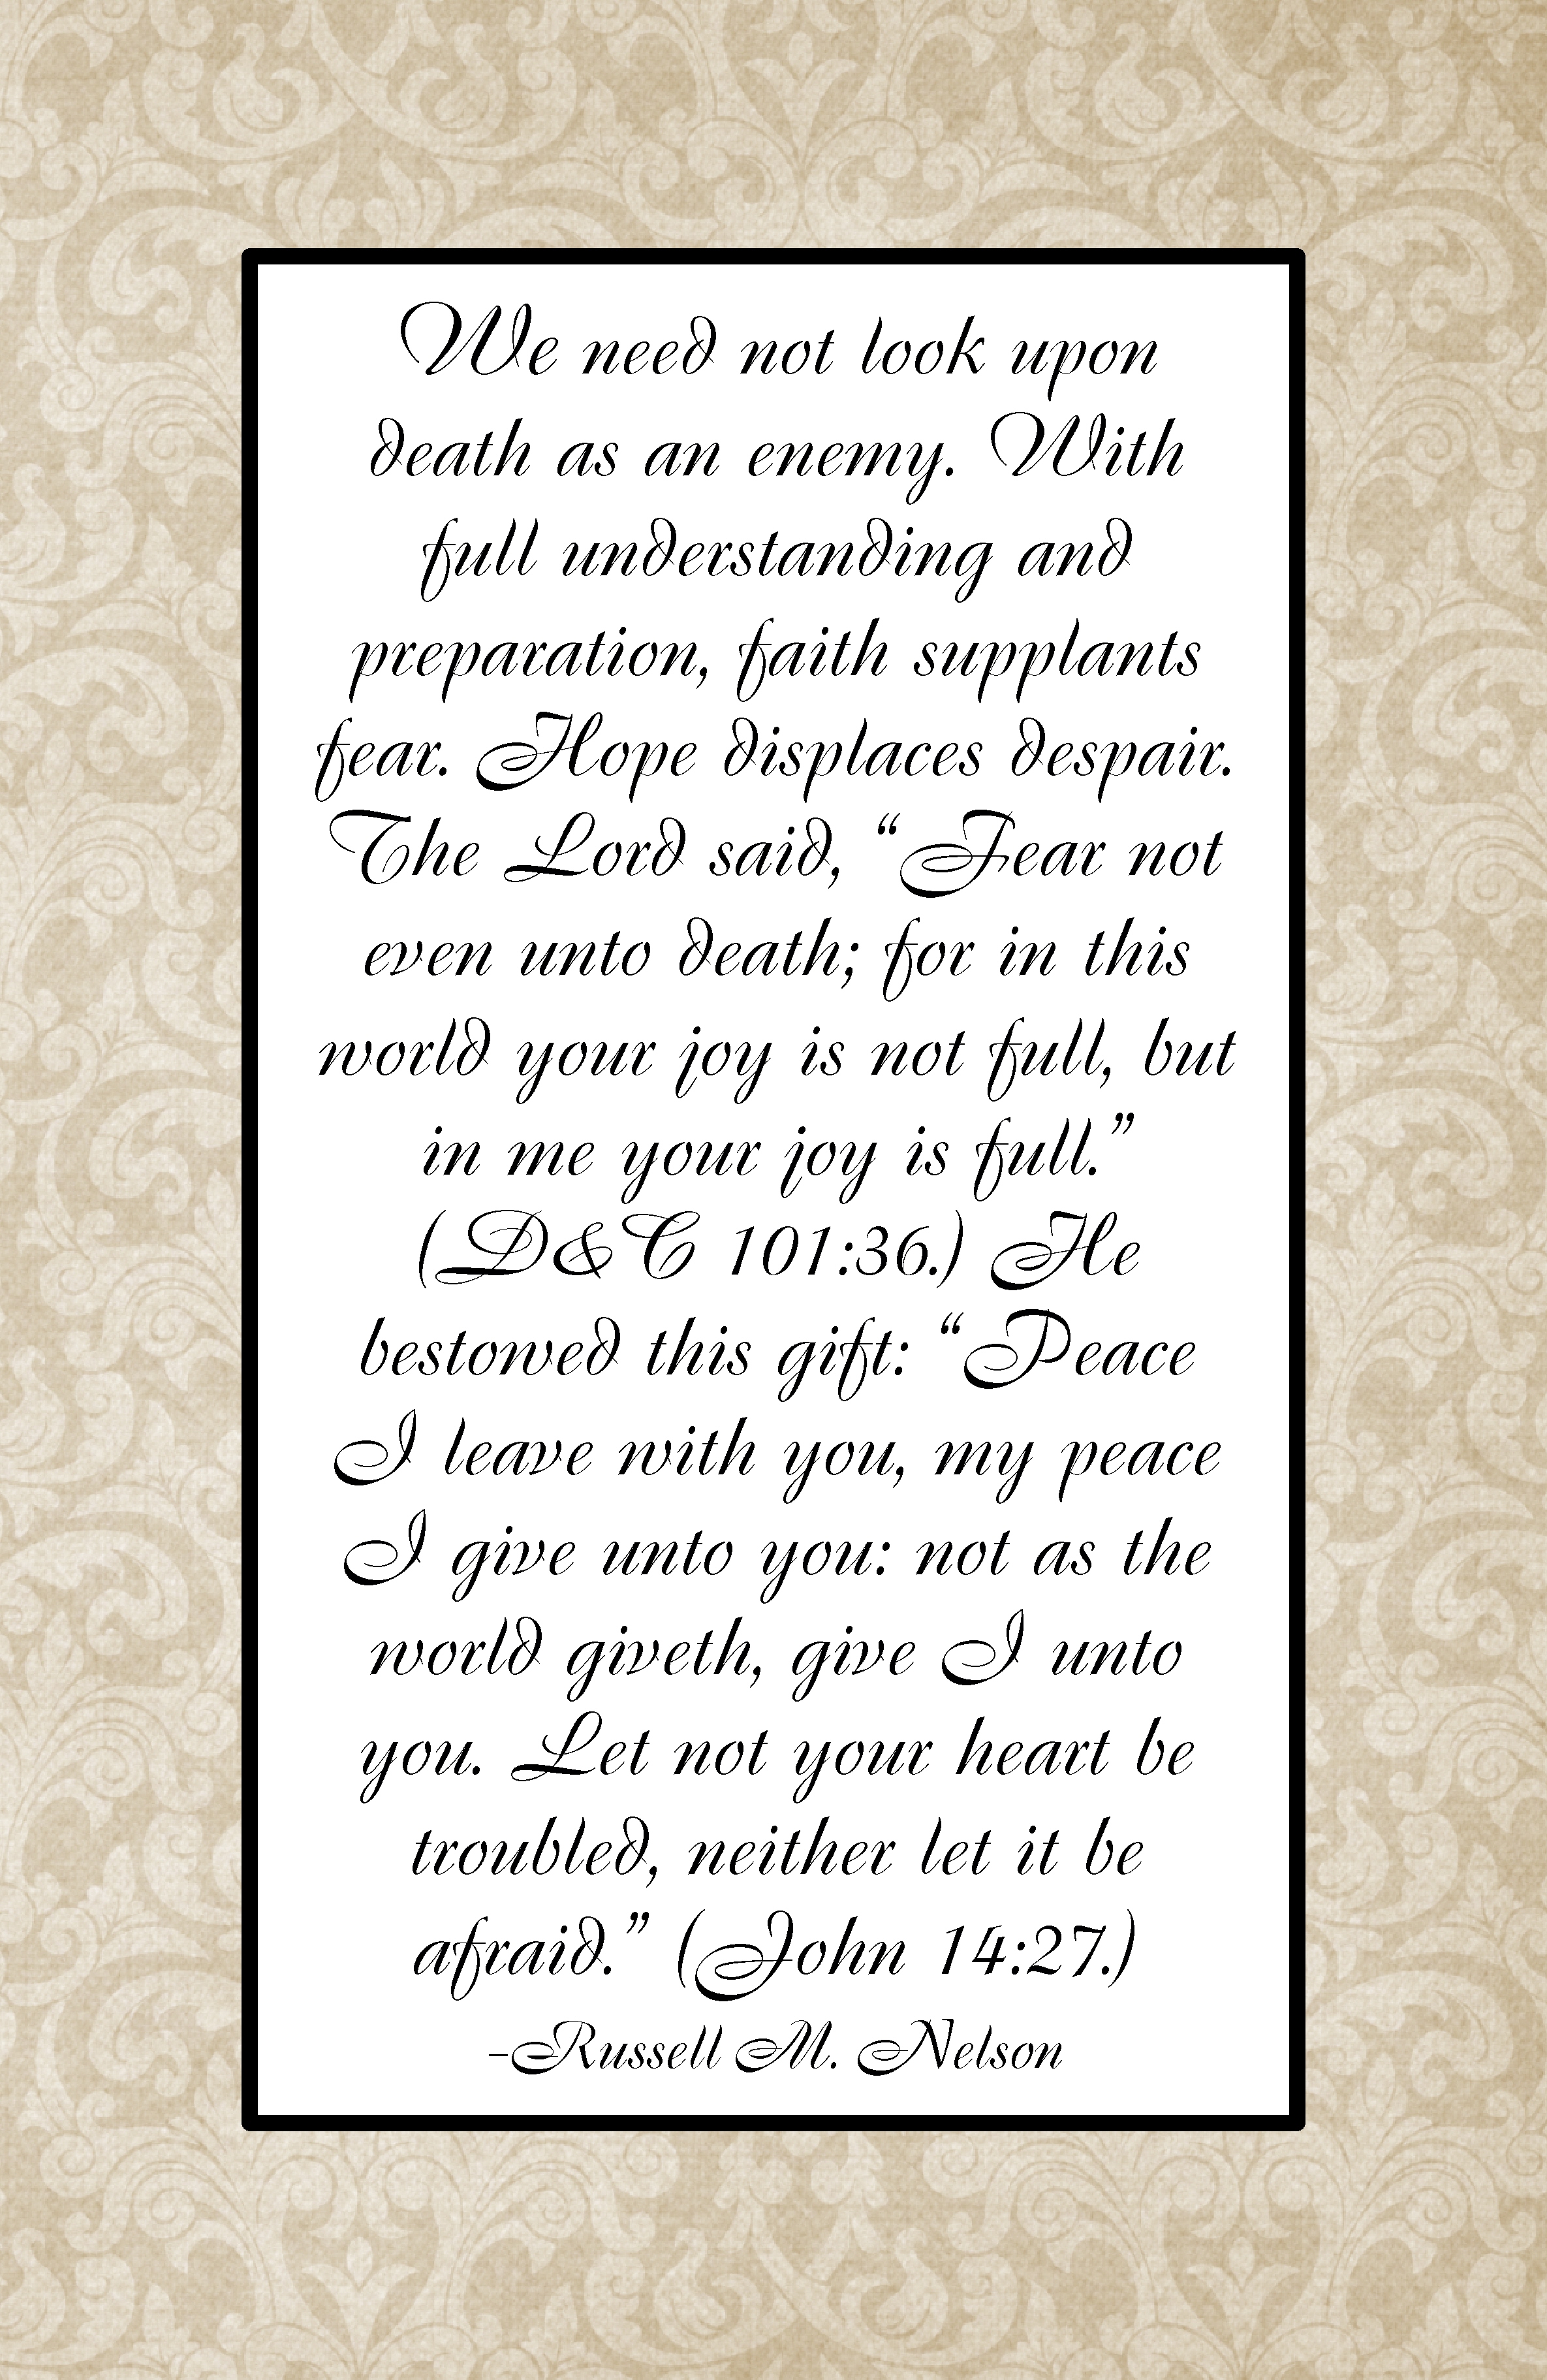 We need not look upon
death as an enemy. With
full understanding and
preparation, faith supplants
fear. Hope displaces despair.
The Lord said, “Fear not
even unto death; for in this
world your joy is not full, but
in me your joy is full.”
(D&C 101:36.) He
bestowed this gift: “Peace
I leave with you, my peace
I give unto you: not as the
world giveth, give I unto
you. Let not your heart be
troubled, neither let it be
afraid.” (John 14:27.)
-Russell M. Nelson